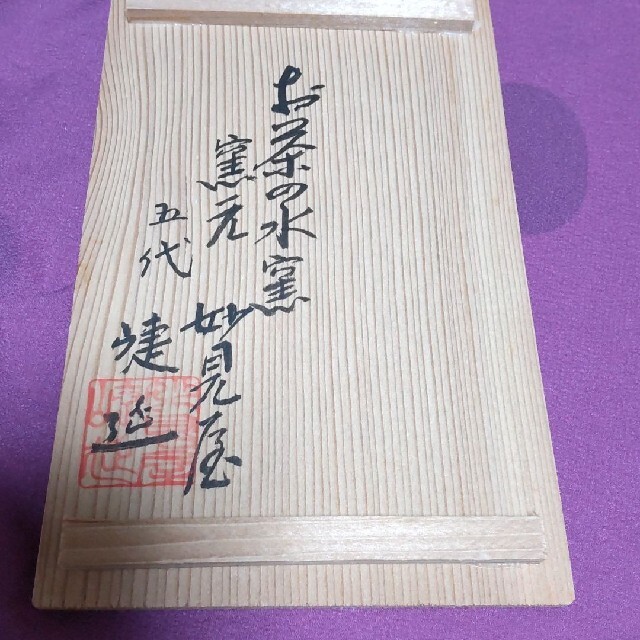 お茶の水窯
窯元 妙見屋
五代